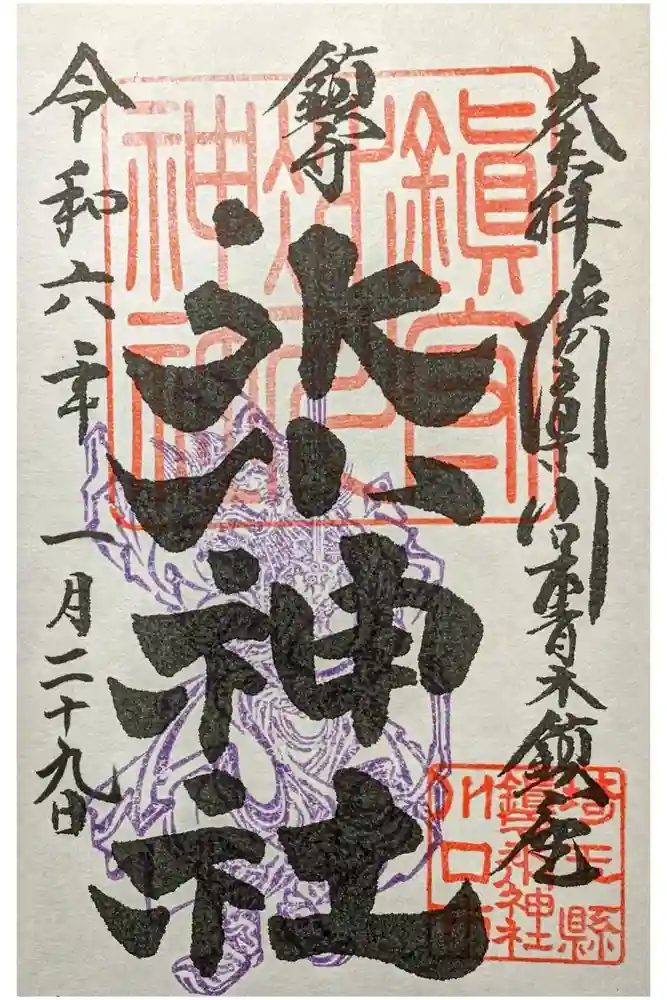 奉拝
青木鎮座
鎮守
氷川神社
令和六年一月二十九日
鎮守
氷川
神社
埼玉縣
鎮守氷川神社
川口市